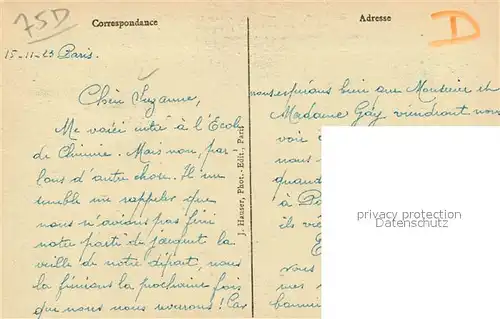 75D
Correspondance
Adresse
D
15-11-23 Paris.
Chère Suzanne,
Me voici entré à l'Ecole
de Chimie. Mais non, par-
lons d'autre chose. Il me
semble me rappeler que
nous n'avions pas fini
notre partie de jacquet la
veille de notre départ, nous
la finirons la prochaine fois
que nous nous reverrons ! Car
nous espérons bien que Monsieur et
Madame Gay viendront nous
voir
nous
quand
à
ils
vous
mes
J. Hauser, Phot.-Edit., Paris
privacy protection
Datenschutz